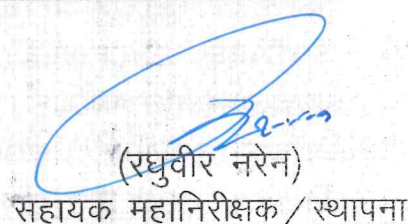 (रघुवीर नरेन)
सहायक महानिरीक्षक / स्थापना